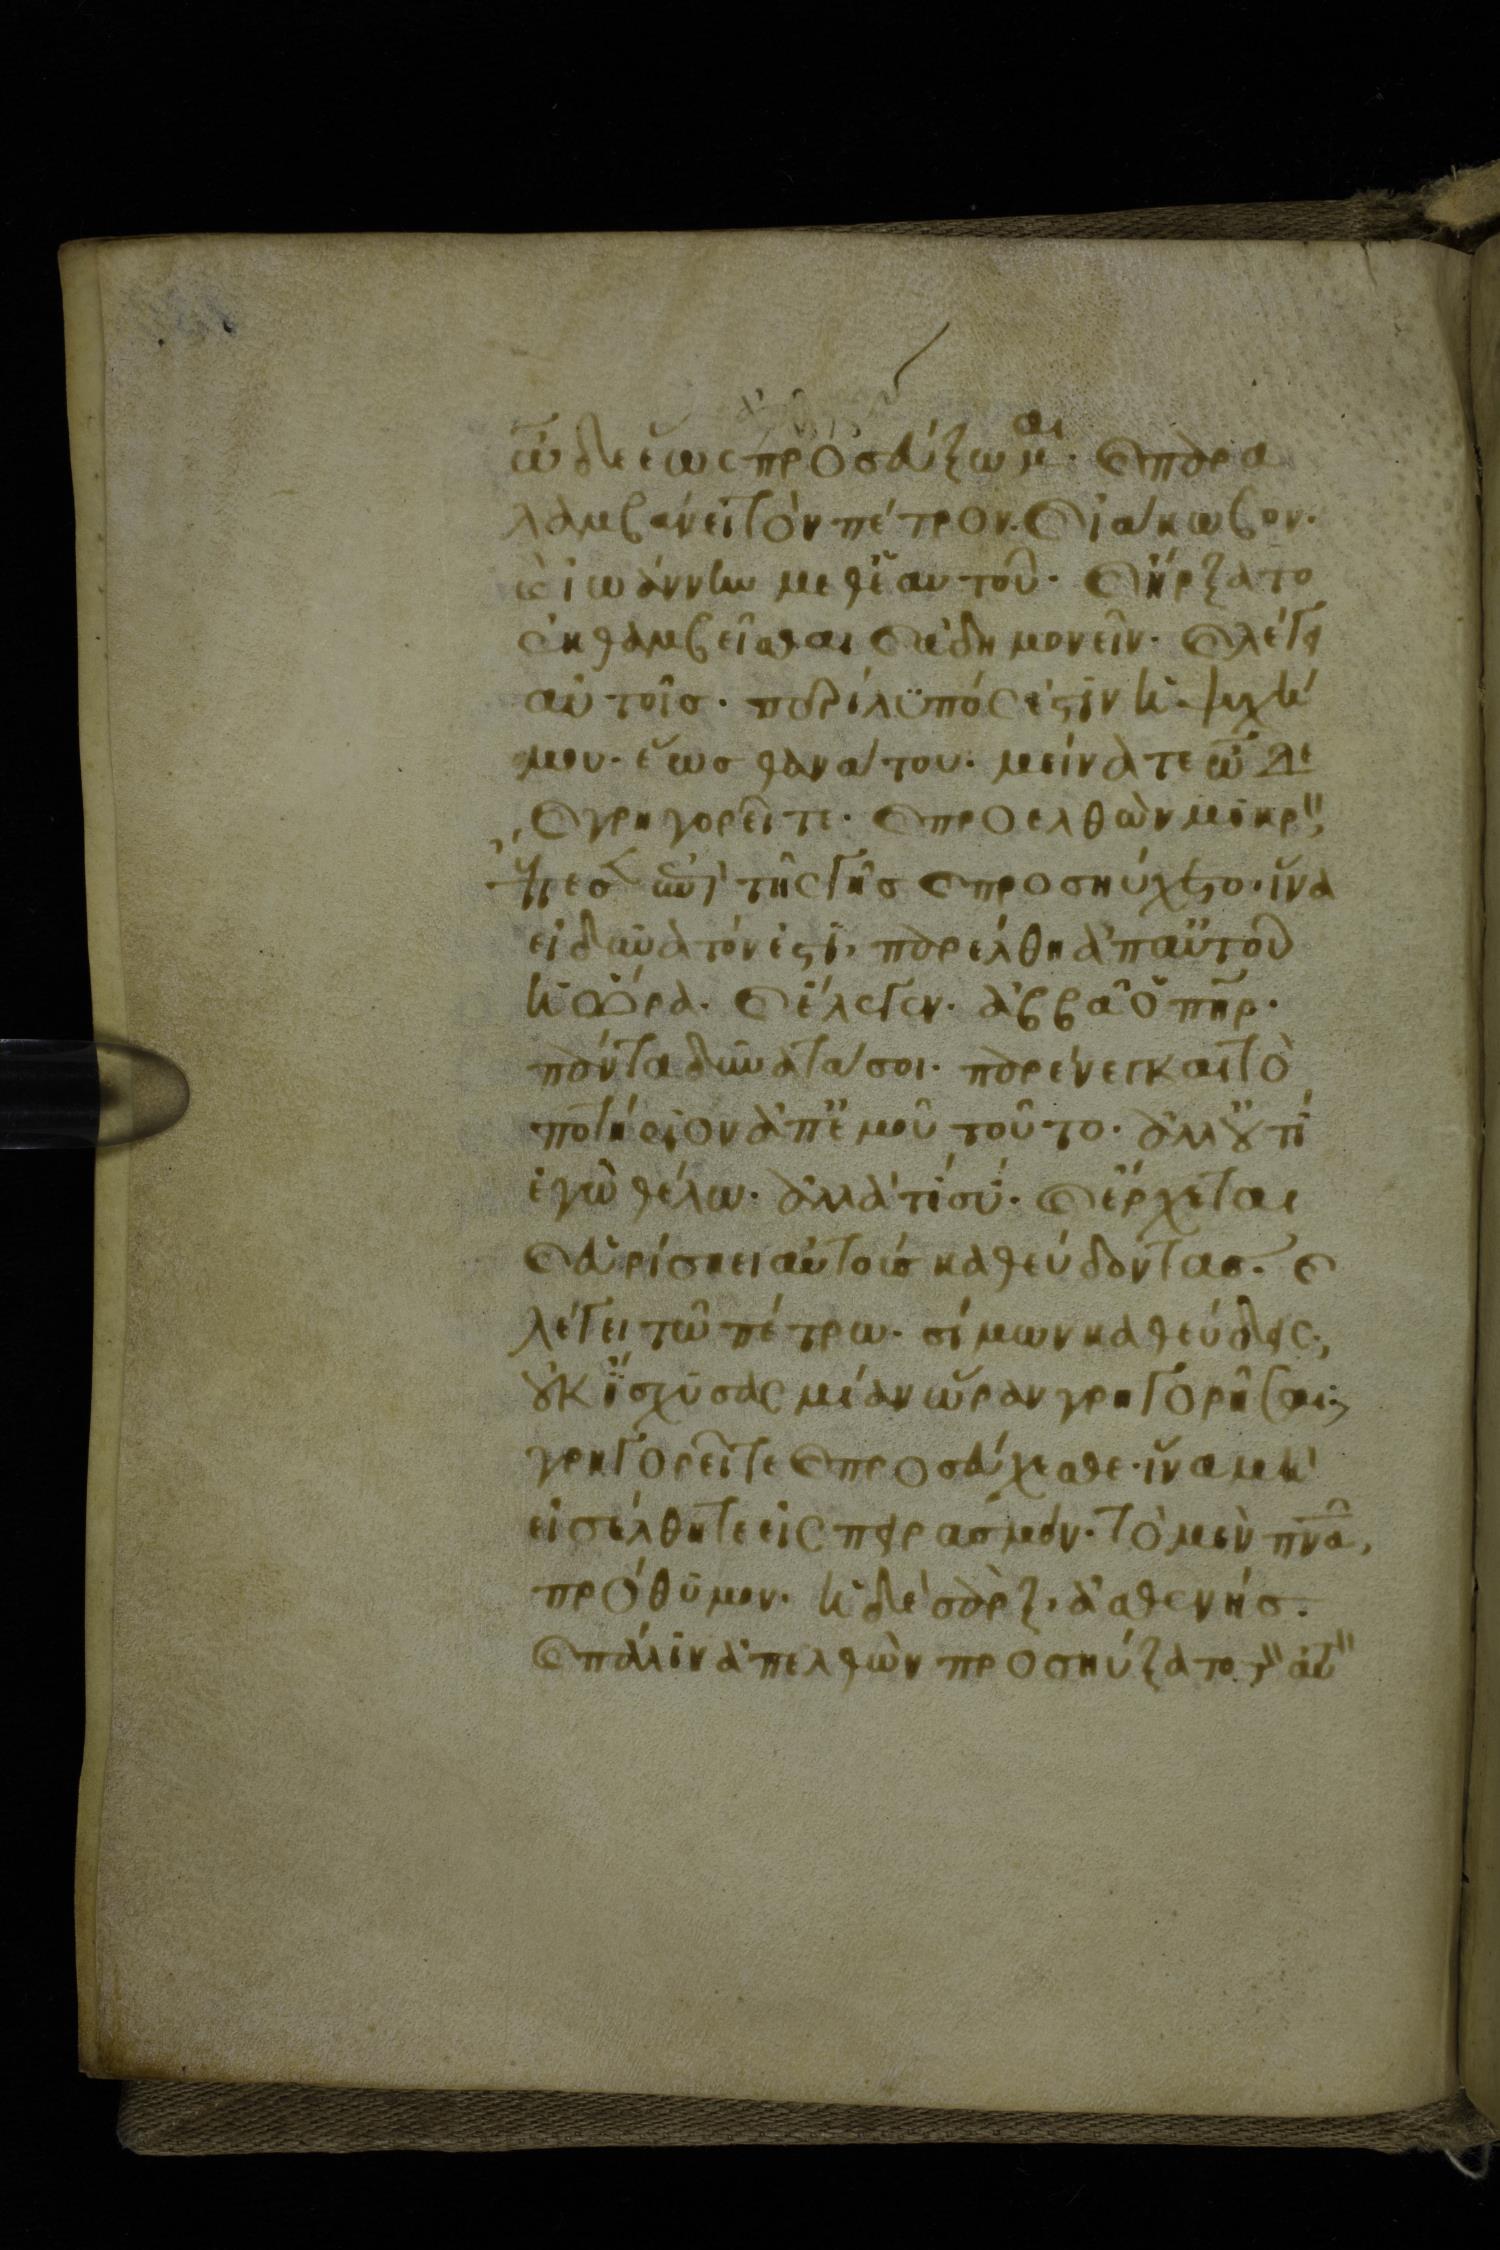 ὧδε ἕως προσεύξωμαι· καὶ παρα
λαμβάνει τὸν πέτρον· καὶ ἰάκωβον·
καὶ ἰωάννην μεθ' ἑαυτοῦ· καὶ ἤρξατο
ἐκθαμβεῖσθαι καὶ ἀδημονεῖν· καὶ λέγει
αὐτοῖς· περίλυπός ἐστιν ἡ ψυχή
μου· ἕως θανάτου· μείνατε ὧδε
καὶ γρηγορεῖτε· καὶ προελθὼν μικρ
ἔπεσεν ἐπὶ τῆς γῆς καὶ προσηύχετο· ἵνα
εἰ δυνατόν ἐστι, παρέλθη ἀπ' αὐτοῦ
ἡ ὥρα· καὶ ἔλεγεν· ἀββᾶ ὁ πηρ·
πάντα δυνατά σοι· παρένεγκαι τὸ
ποτήριον ἀπ' ἐμοῦ τοῦτο· ἀλλ' οὐ τί
ἐγὼ θέλω· ἀλλὰ τί σύ· καὶ ἔρχεται
καὶ εὑρίσκει αὐτοὺς καθεύδοντας· καὶ
λέγει τῶ πέτρω· σίμων καθεύδεις;
οὐκ ἴσχυσας μίαν ὥραν γρηγορῆσαι;
γρηγορεῖτε καὶ προσεύχεσθε· ἵνα μὴ
εἰσέλθητε εἰς πειρασμόν· τὸ μὲν πνα,
πρόθυμον· ἡ δὲ σὰρξ, ἀσθενής·
καὶ πάλιν ἀπελθὼν προσηύξατο τ αυτ